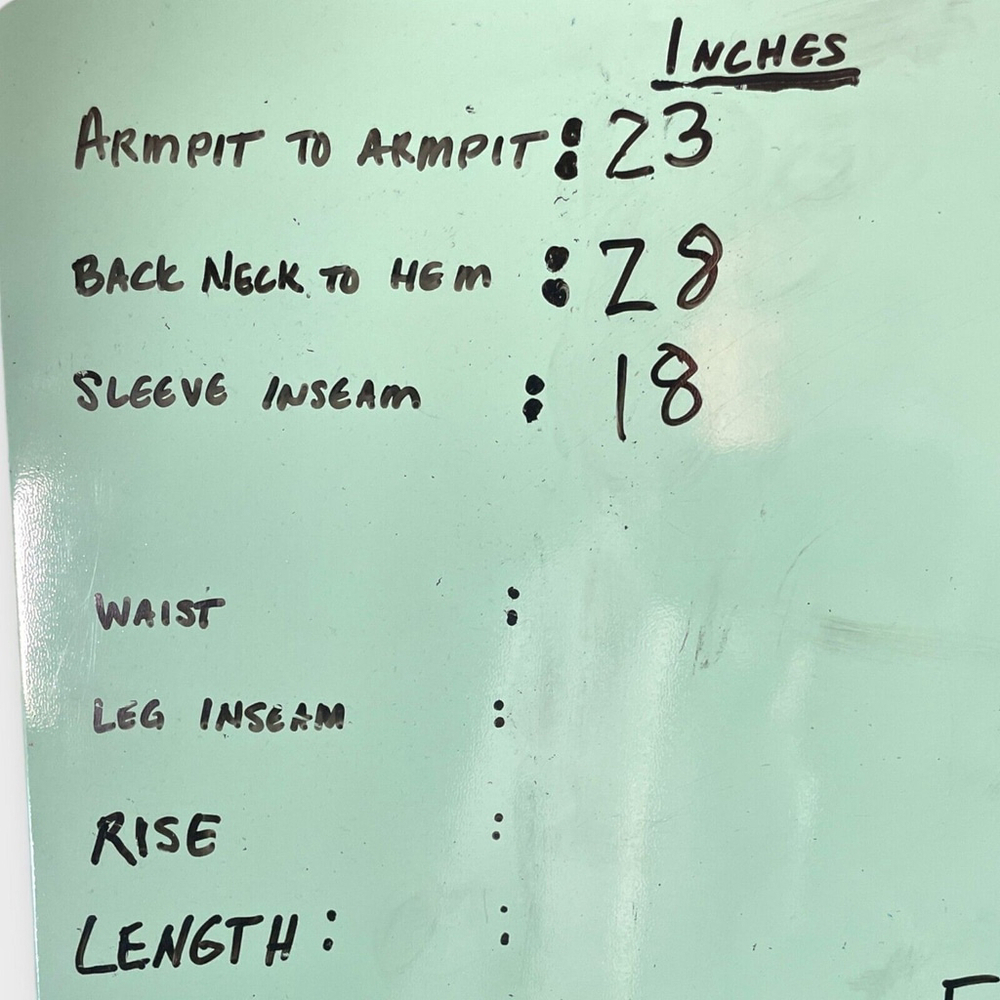 INCHES
ARMPIT TO ARMPIT : 23
BACK NECK TO HEM : 28
SLEEVE INSEAM : 18
WAIST :
LEG INSEAM :
RISE :
LENGTH : :